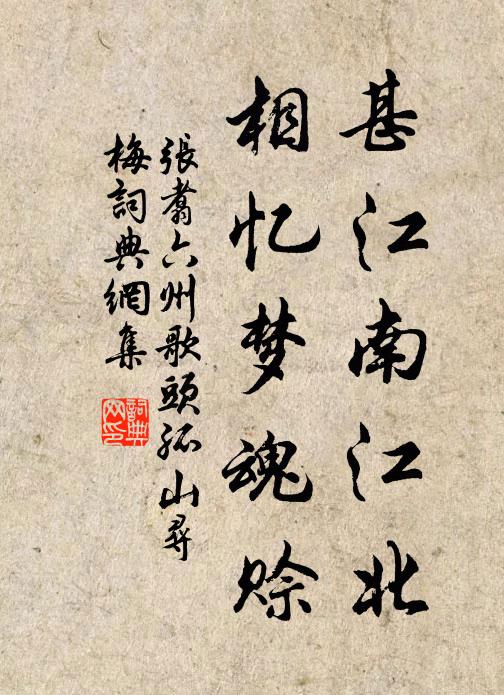 甚江南江北
相忆梦魂赊
張翥六州歌頭孤山尋
梅詞典網集
詞典网印